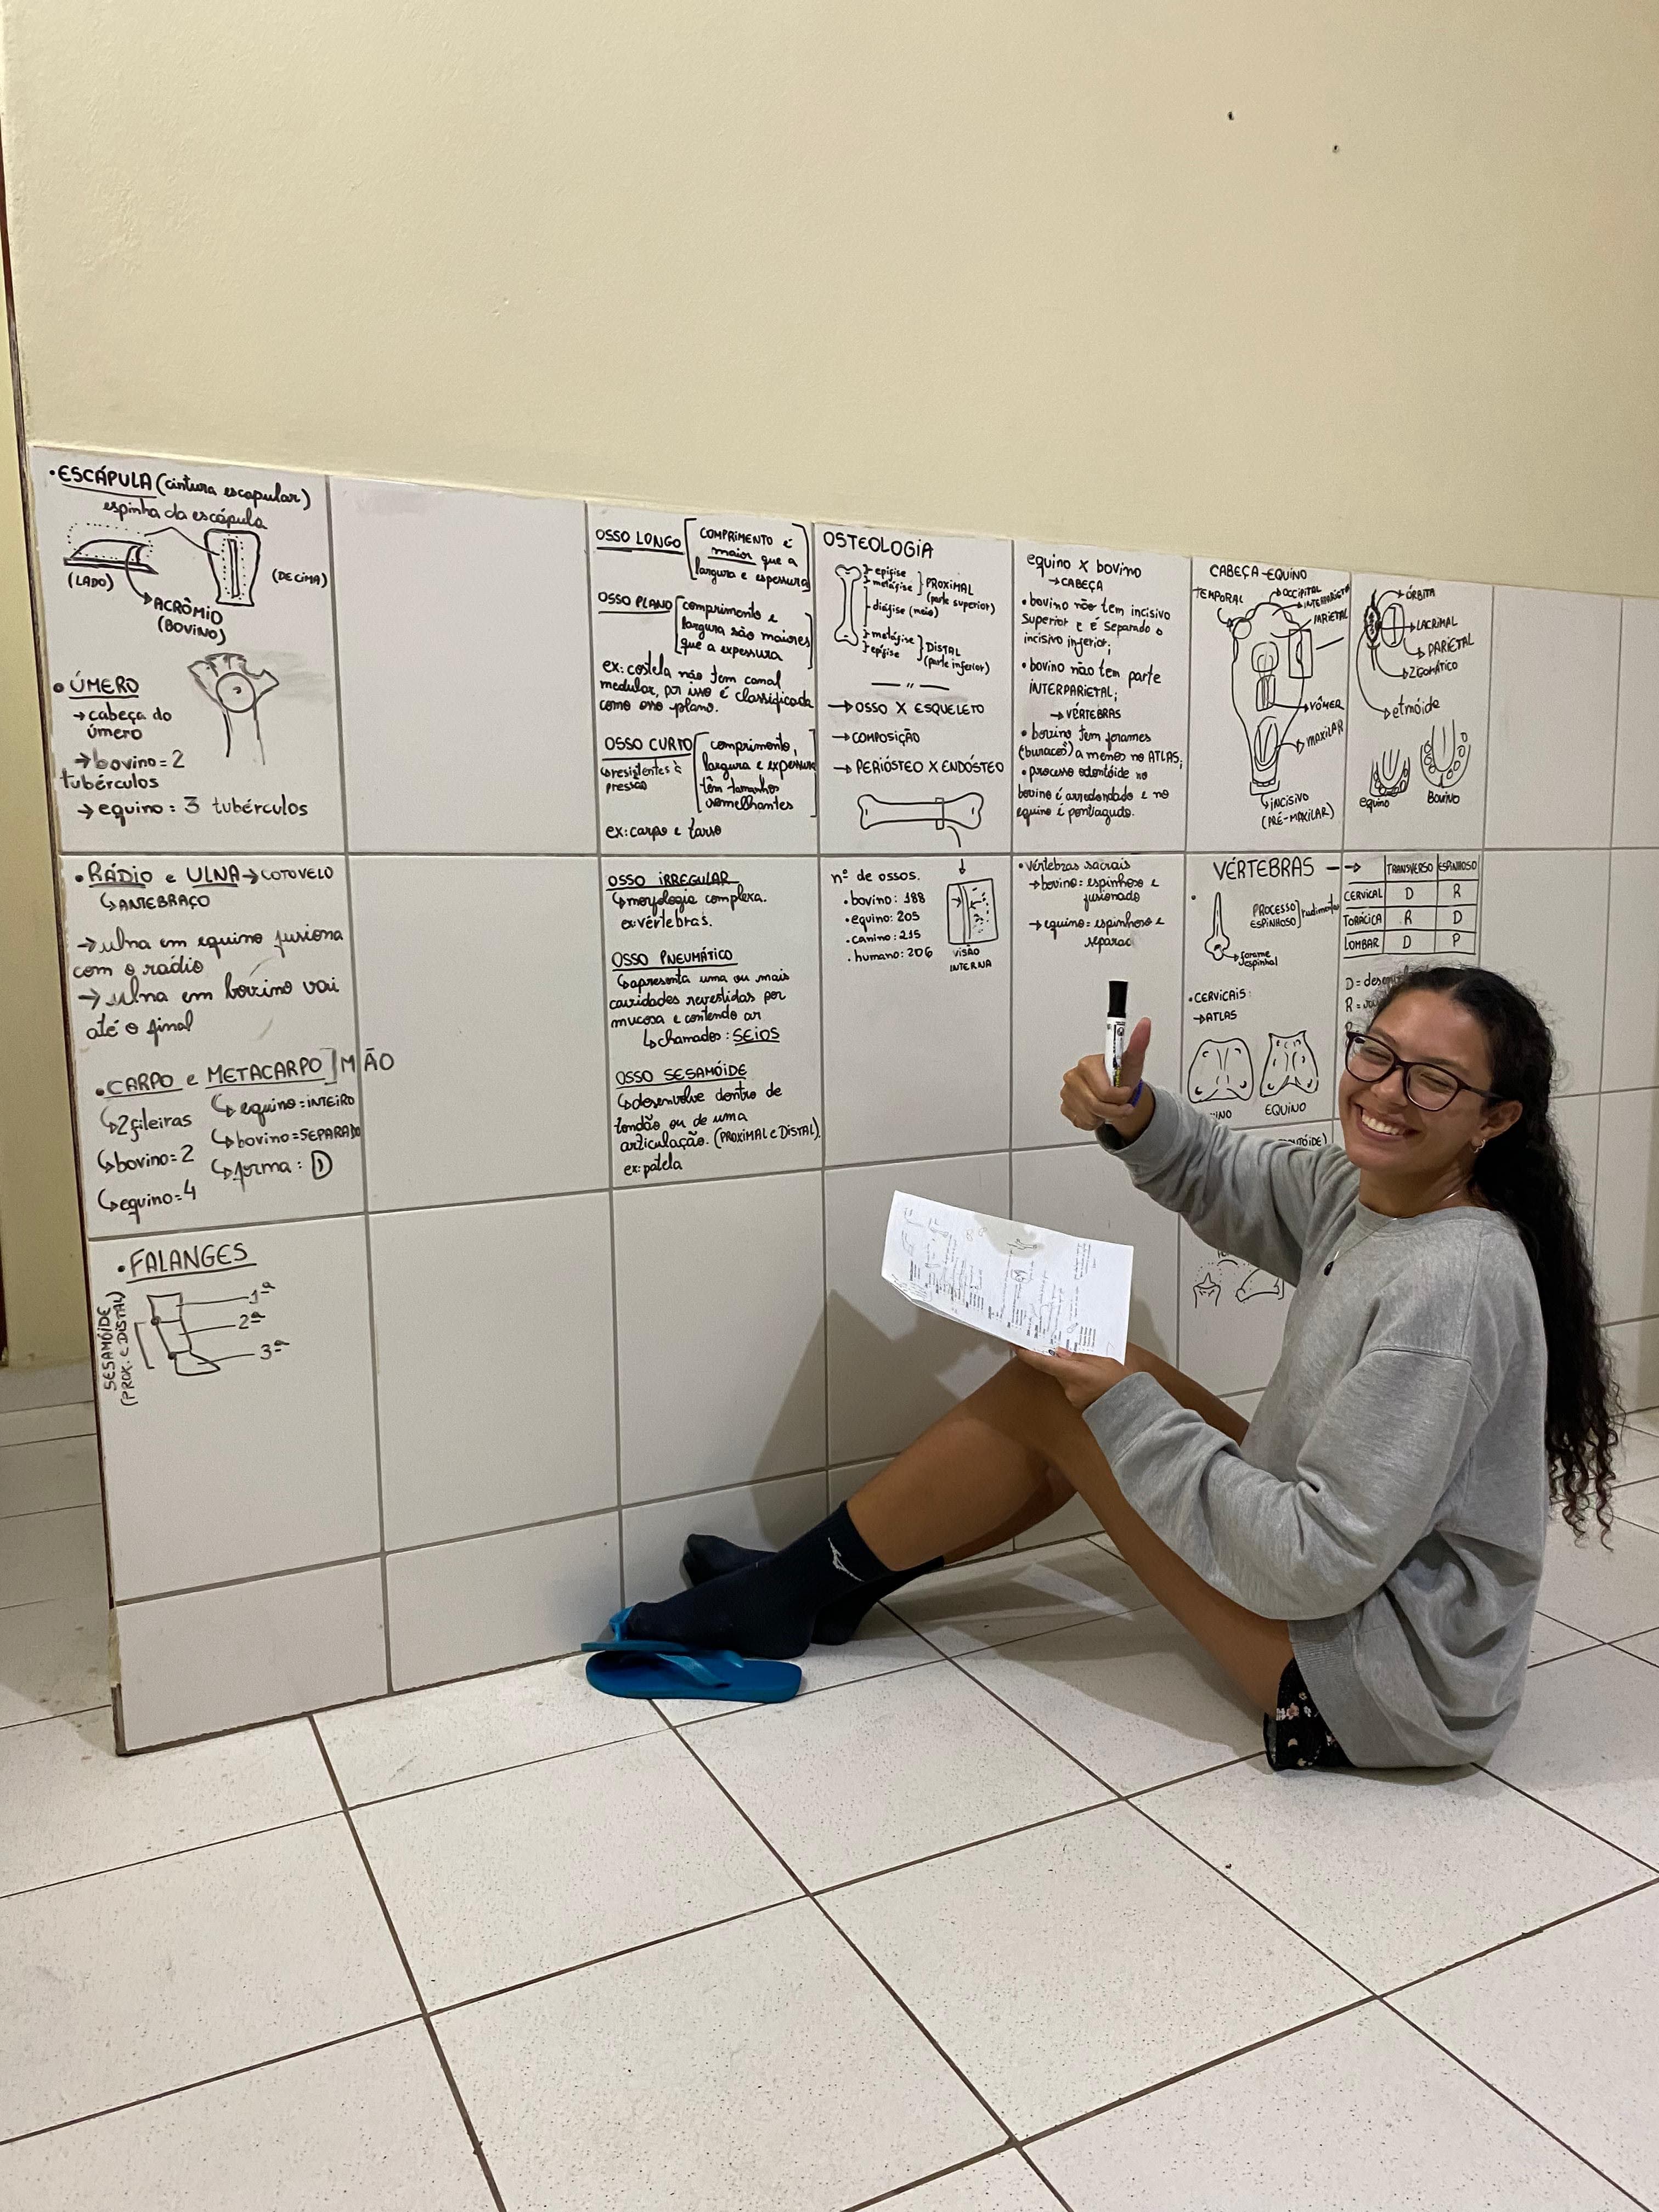 •ESCÁPULA (cintura escapular)
espinha da escápula
(LADO)
(DE CIMA)
ACRÔMIO
(BOVINO)
•ÚMERO
→cabeça do
úmero
→bovino=2
tubérculos
→ equino = 3 tubérculos
•RÁDIO e ULNA→COTOVELO
↳ANTEBRAÇO
→ulna em equino fusiona
com o rádio
→ulna em bovino vai
até o final
•CARPO e METACARPO] MÃO
↳2 fileiras
↳bovino=2
↳equino=4
↳equino=INTEIRO
↳bovino=SEPARADO
↳forma: D
•FALANGES
1ª
2ª
3ª
SESAMÓIDE
(PROX. e DISTAL)
OSSO LONGO [COMPRIMENTO é
maior que a
largura e espessura]
OSSO PLANO [comprimento e
largura são maiores
que a expessura]
ex: costela não tem canal
medular, por isso é classificada
como osso plano.
OSSO CURTO [comprimento,
largura e expessura
têm tamanhos
semelhantes]
↳resistentes à
pressão
ex: carpo e tarso
OSSO IRREGULAR
↳morfologia complexa.
ex: vértebras.
OSSO PNEUMÁTICO
↳apresenta uma ou mais
cavidades revestidas por
mucosa e contendo ar
↳chamados: SEIOS
OSSO SESAMÓIDE
↳desenvolve dentro de
tendão ou de uma
articulação. (PROXIMAL e DISTAL).
ex: patela
OSTEOLOGIA
epífise
metáfise
PROXIMAL
(parte superior)
diáfise (meio)
metáfise
epífise
DISTAL
(parte inferior)
→OSSO X ESQUELETO
→COMPOSIÇÃO
→PERIÓSTEO X ENDÓSTEO
nº de ossos.
•bovino: 188
•equino: 205
•canino: 215
•humano: 206
VISÃO
INTERNA
equino X bovino
→CABEÇA
•bovino não tem incisivo
superior e é separado o
incisivo inferior;
•bovino não tem parte
INTERPARIETAL;
→VÉRTEBRAS
•bovino tem forames
(buracos) a menos no ATLAS;
•processo odontóide no
bovino é arredondado e no
equino é pontiagudo.
•vértebras sacrais
→bovino=espinhoso e
fusionado
→equino=espinhoso e
separac
CABEÇA-EQUINO
TEMPORAL
OCCIPITAL
PARIETAL
VÔMER
MAXILAR
INCISIVO
(PRÉ-MAXILAR)
ÓRBITA
LACRIMAL
PARIETAL
ZIGOMÁTICO
etmóide
equino
BOVINO
VÉRTEBRAS →
TRANSVERSO ESPINHOSO
CERVICAL D R
TORÁCICA R D
LOMBAR D P
PROCESSO
ESPINHOSO
forame
espinhal
D=
R=
•CERVICAIS:
→ATLAS
EQUINO